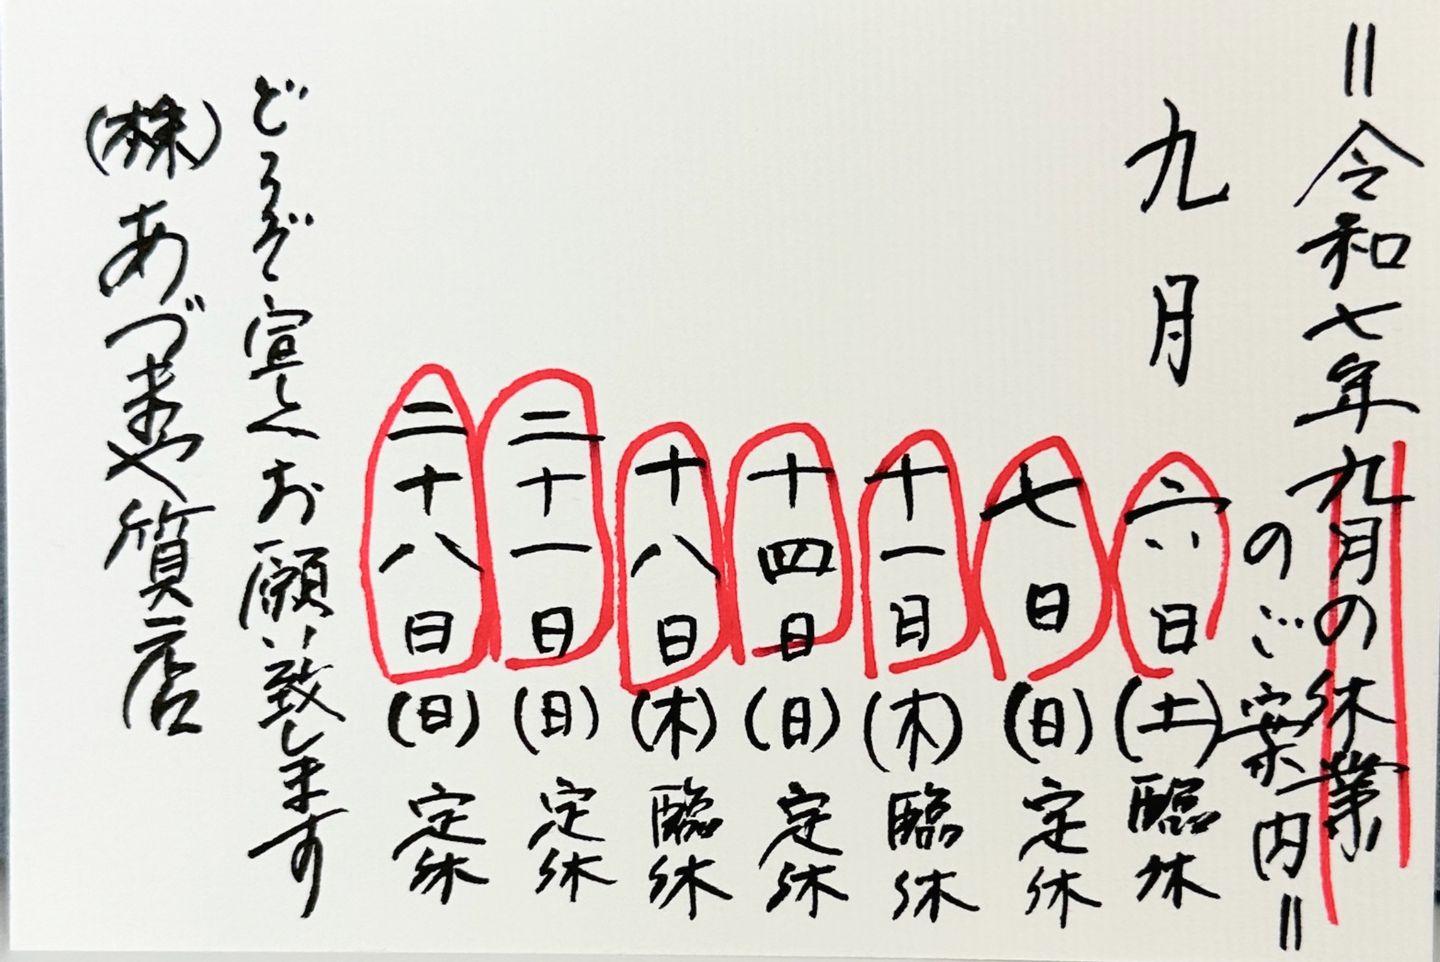 ＝令和七年九月の休業
のご案内＝
九月
六日(土)臨休
七日(日)定休
十一日(木)臨休
十四日(日)定休
十八日(木)臨休
二十一日(日)定休
二十八日(日)定休
どうぞ宜しくお願い致します
(株)あづまや質店